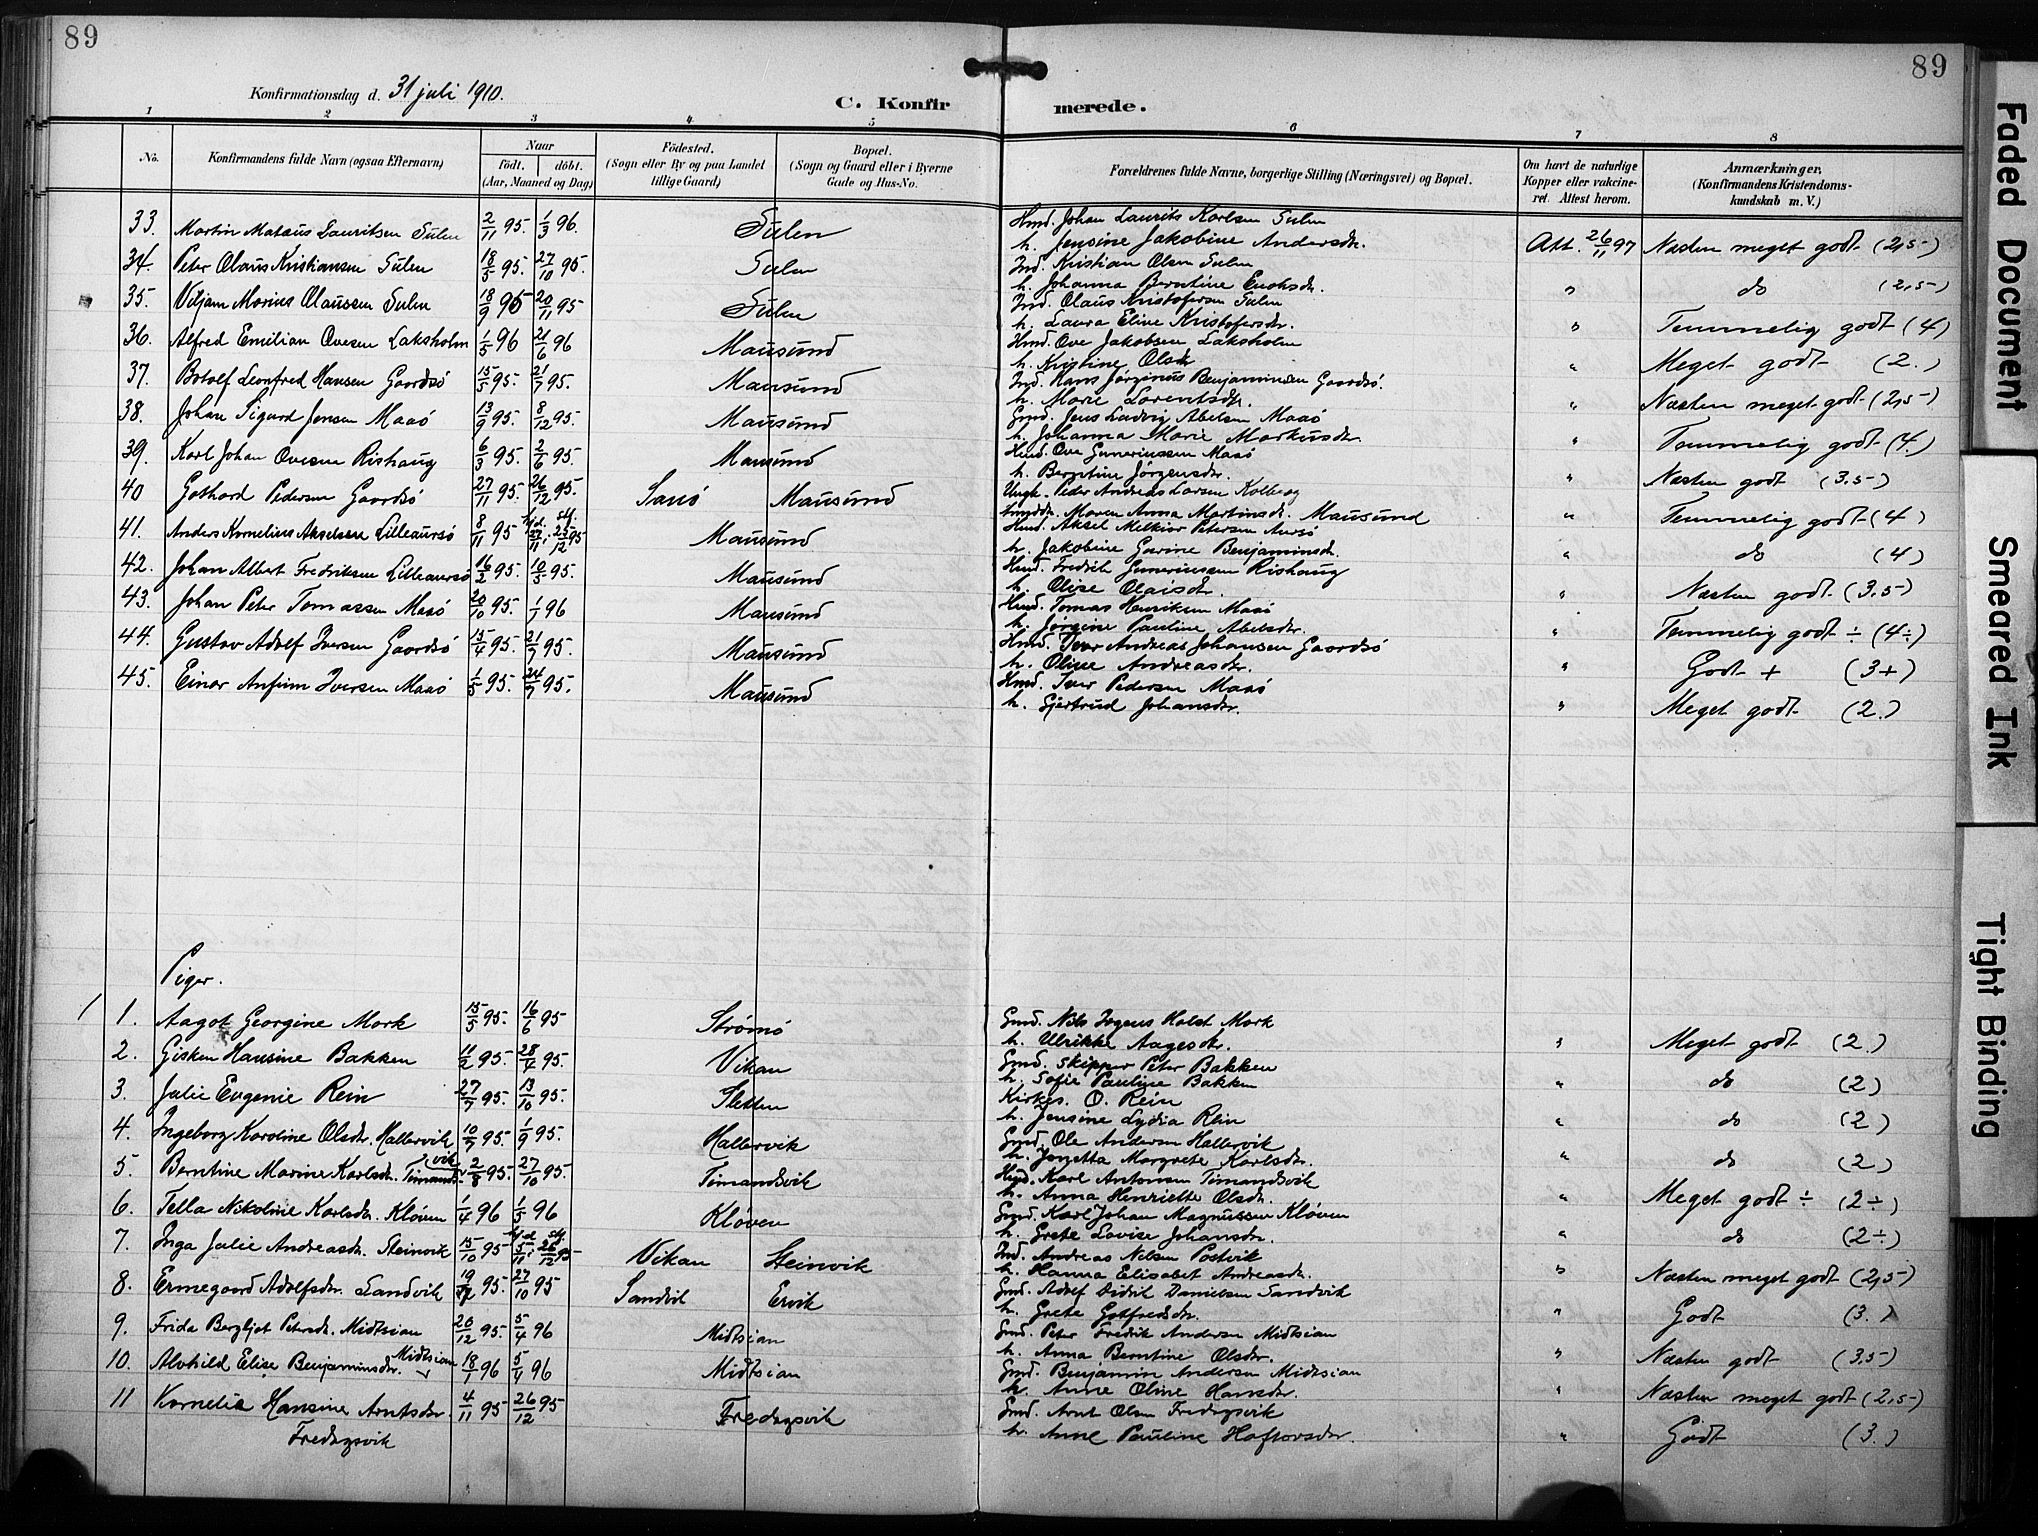 89
89
Konfirmationsdag d. 31 juli 1910.
C. Konfirmerede.
1 2 3 4 5 6 7 8
No.
Konfirmandens fulde Navn (ogsaa Efternavn)
Naar
födt. döbt.
(Aar, Maaned og Dag)
Födested.
(Sogn eller By og paa Landet
tillige Gaard)
Bopæl.
(Sogn og Gaard eller i Byerne
Gade og Hus-No.
Forældrenes fulde Navne, borgerlige Stilling (Næringsvei) og Bopæl.
Om havt de naturlige
Kopper eller vakcine-
ret. Attest herom.
Anmærkninger,
(Konfirmandens Kristendoms-
kundskab m. V.)
33. Martin Mataus Lauritsen Sulen 2/11 95. 1/3 96. Sulen Hmd. Johan Laurits Karlsen Sulen
h. Jensine Jakobine Andersdr. Att. 26/11 97 Næsten meget godt (2,5)
34. Peter Olaus Kristiansen Sulen 18/5 95. 27/10 95. Sulen Ind. Kristian Olsen Sulen
h. Johanna Berntine Enoksdr. " do (2,5)
35. Viljam Marius Olaussen Sulen 18/9 95 20/11 95 Sulen Ind. Olaus Kristofersen Sulen
h. Laura Eline Kristofersdr. " Temmelig godt (4)
36. Alfred Emilian Ovesen Laksholm 1/5 96 21/6 96 Mausund Hmd. Ove Jakobsen Laksholm
h. Kristine Olsdr " Meget godt (2.)
37. Botolf Leonfred Hansen Gaardsö 15/5 95. 21/7 95. Mausund Ind. Hans Jörginus Benjaminsen Gaardsö.
h. Marie Lorentsdr. " Næsten meget godt (2,5)
38. Johan Sigurd Jensen Maasö 13/9 95 8/12 95. Mausund Gmd. Jens Ludvig Abelsen Maasö
h. Johanna Marie Markusdr. " Temmelig godt (4.)
39. Karl Johan Ovesen Rishaug 6/3 95. 2/6 95. Mausund Hmd. Ove Gunerinssen Maasö
h. Berntine Jörgensdr. " Næsten godt (3.5)
40 Gothard Pedersen Gaardsö 27/11 95. 26/12 95. Sauö Mausund Ungk. Peder Andreas Larsen Kolberg
Maren Anna Martinsdr. Mausund " Temmelig godt (4)
41. Anders Kornelius Akselsen Lilleaursö 8/11 95 hjd. 27/11. stf. 25/12 95 Mausund Hmd. Aksel Melkior Petersen Aursö
h. Jakobine Gurine Benjaminsdr. " do (4)
42. Johan Albert Fredriksen Lilleaursö 16/2 95. 10/5 95. Mausund Hmd. Fredrik Gunerinssen Rishaug
h. Olise Olaisdr. " Næsten godt (3,5)
43. Johan Peter Tomassen Maasö 20/10 95. 1/1 96 Mausund Hmd. Tomas Henriksen Maasö
h. Jörgine Pauline Abelsdr. " Temmelig godt ÷ (4÷)
44. Gustav Adolf Iversen Gaardsö 15/4 95. 21/7 95. Mausund Hmd. Iver Andreas Johansen Gaardsö
h. Oline Andreasdr. " Godt + (3+)
45. Einar Anfinn Iversen Maasö 1/5 95. 24/7 95. Mausund Hmd. Iver Pedersen Maasö
h. Gjertrud Johansdr. " Meget godt (2.)
Piger.
1. Aagot Georgine Mork 15/5 95. 16/6 95 Strömö Gmd. Nils Irgens Holst Mork
h. Ulrikke Aagesdr. " Meget godt (2.)
2. Gisken Hansine Bakken 11/2 95. 28/4 95. Vikan Gmd. Skipper Peter Bakken
h. Sofie Pauline Bakken " do (2)
3. Julie Eugenie Rein 27/7 95. 13/10 95. Sletten Kirkes. O. Rein
h. Jensine Lydia Rein " do (2)
4. Ingeborg Karoline Olsdr. Hallervik 10/7 95. 1/9 95. Hallervik Gmd. Ole Andersen Hallervik
h. Jonetta Margrete Karlsdr. " do (2)
5. Berntine Marine Karlsdr. Timandsvik 2/8 95. 27/10 95. Timandsvik Hmd. Karl Antonsen Timandsvik
h. Anna Henriette Olsdr. " Meget godt ÷ (2÷)
6. Tella Nikoline Karlsdr. Klöven 1/4 96 1/5 96 Klöven Gmd. Karl Johan Magnussen Klöven
h. Grete Lovise Johansdr. " do (2÷)
7. Inga Julie Andreasdr. Steinvik 15/10 95 hjd. 5/11. stf. 26/12 95 Vikan Steinvik Ind. Andreas Nilsen Postvik
h. Hanna Elisabet Andreasdr. " Næsten meget godt (2,5)
8. Ermegaard Adolfsdr. Sandvik 19/7 95. 27/10 95 Sandvik Ervik Gmd. Adolf Didrik Danielsen Sandvik
h. Grete Gotfredsdr. " Godt (3.)
9. Frida Bergljot Petersdr. Midtsian 20/12 95. 5/4 96 Midtsian Gmd. Peter Fredrik Andersen Midtsian
h. Anna Berntine Olsdr. " Næsten godt (3,5)
10. Alvhild Elise Benjaminsdr. Midtsian 18/1 96 5/4 96 Midtsian Gmd. Benjamin Andersen Midtsian
h. Anne Oline Hansdr. " Næsten meget godt (2,5)
11 Kornelie Hansine Arntsdr. 4/11 95 26/12 95 Fredagsvik Gmd. Arnt Olsen Fredagsvik
Fredagsvik h. Anne Pauline Haftorsdr. " Godt (3.)
Faded Document
Smeared Ink
Tight Binding